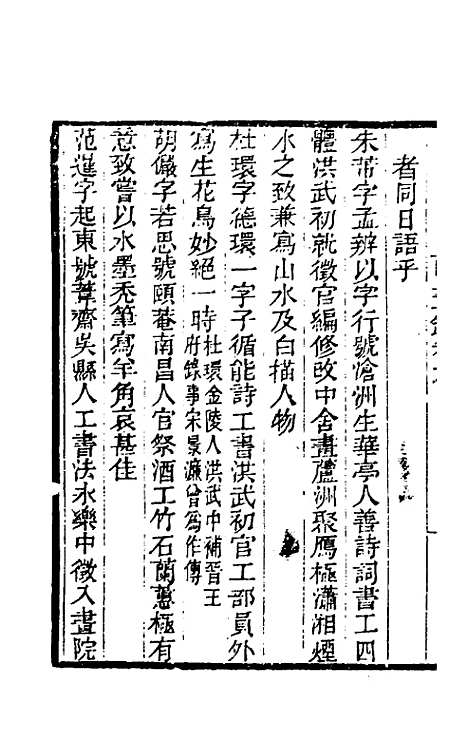 者同日語乎
朱芾字孟辨以字行號滄洲生華亭人善詩詞書工四
體洪武初就徵官編修改中舍畫蘆洲聚鴈極瀟湘煙
水之致兼寫山水及白描人物
杜環字德環一字子循能詩工書洪武初官工部員外
寫生花鳥妙絕一時杜環金陵人洪武中補晉王
府錄事宋景濂曾爲作傳
胡儼字若思號頤菴南昌人官祭酒工竹石蘭蕙極有
意致嘗以水墨禿筆寫羊角哀甚佳
范暹字起東號葦齋吳縣人工書法永樂中徵入畫院